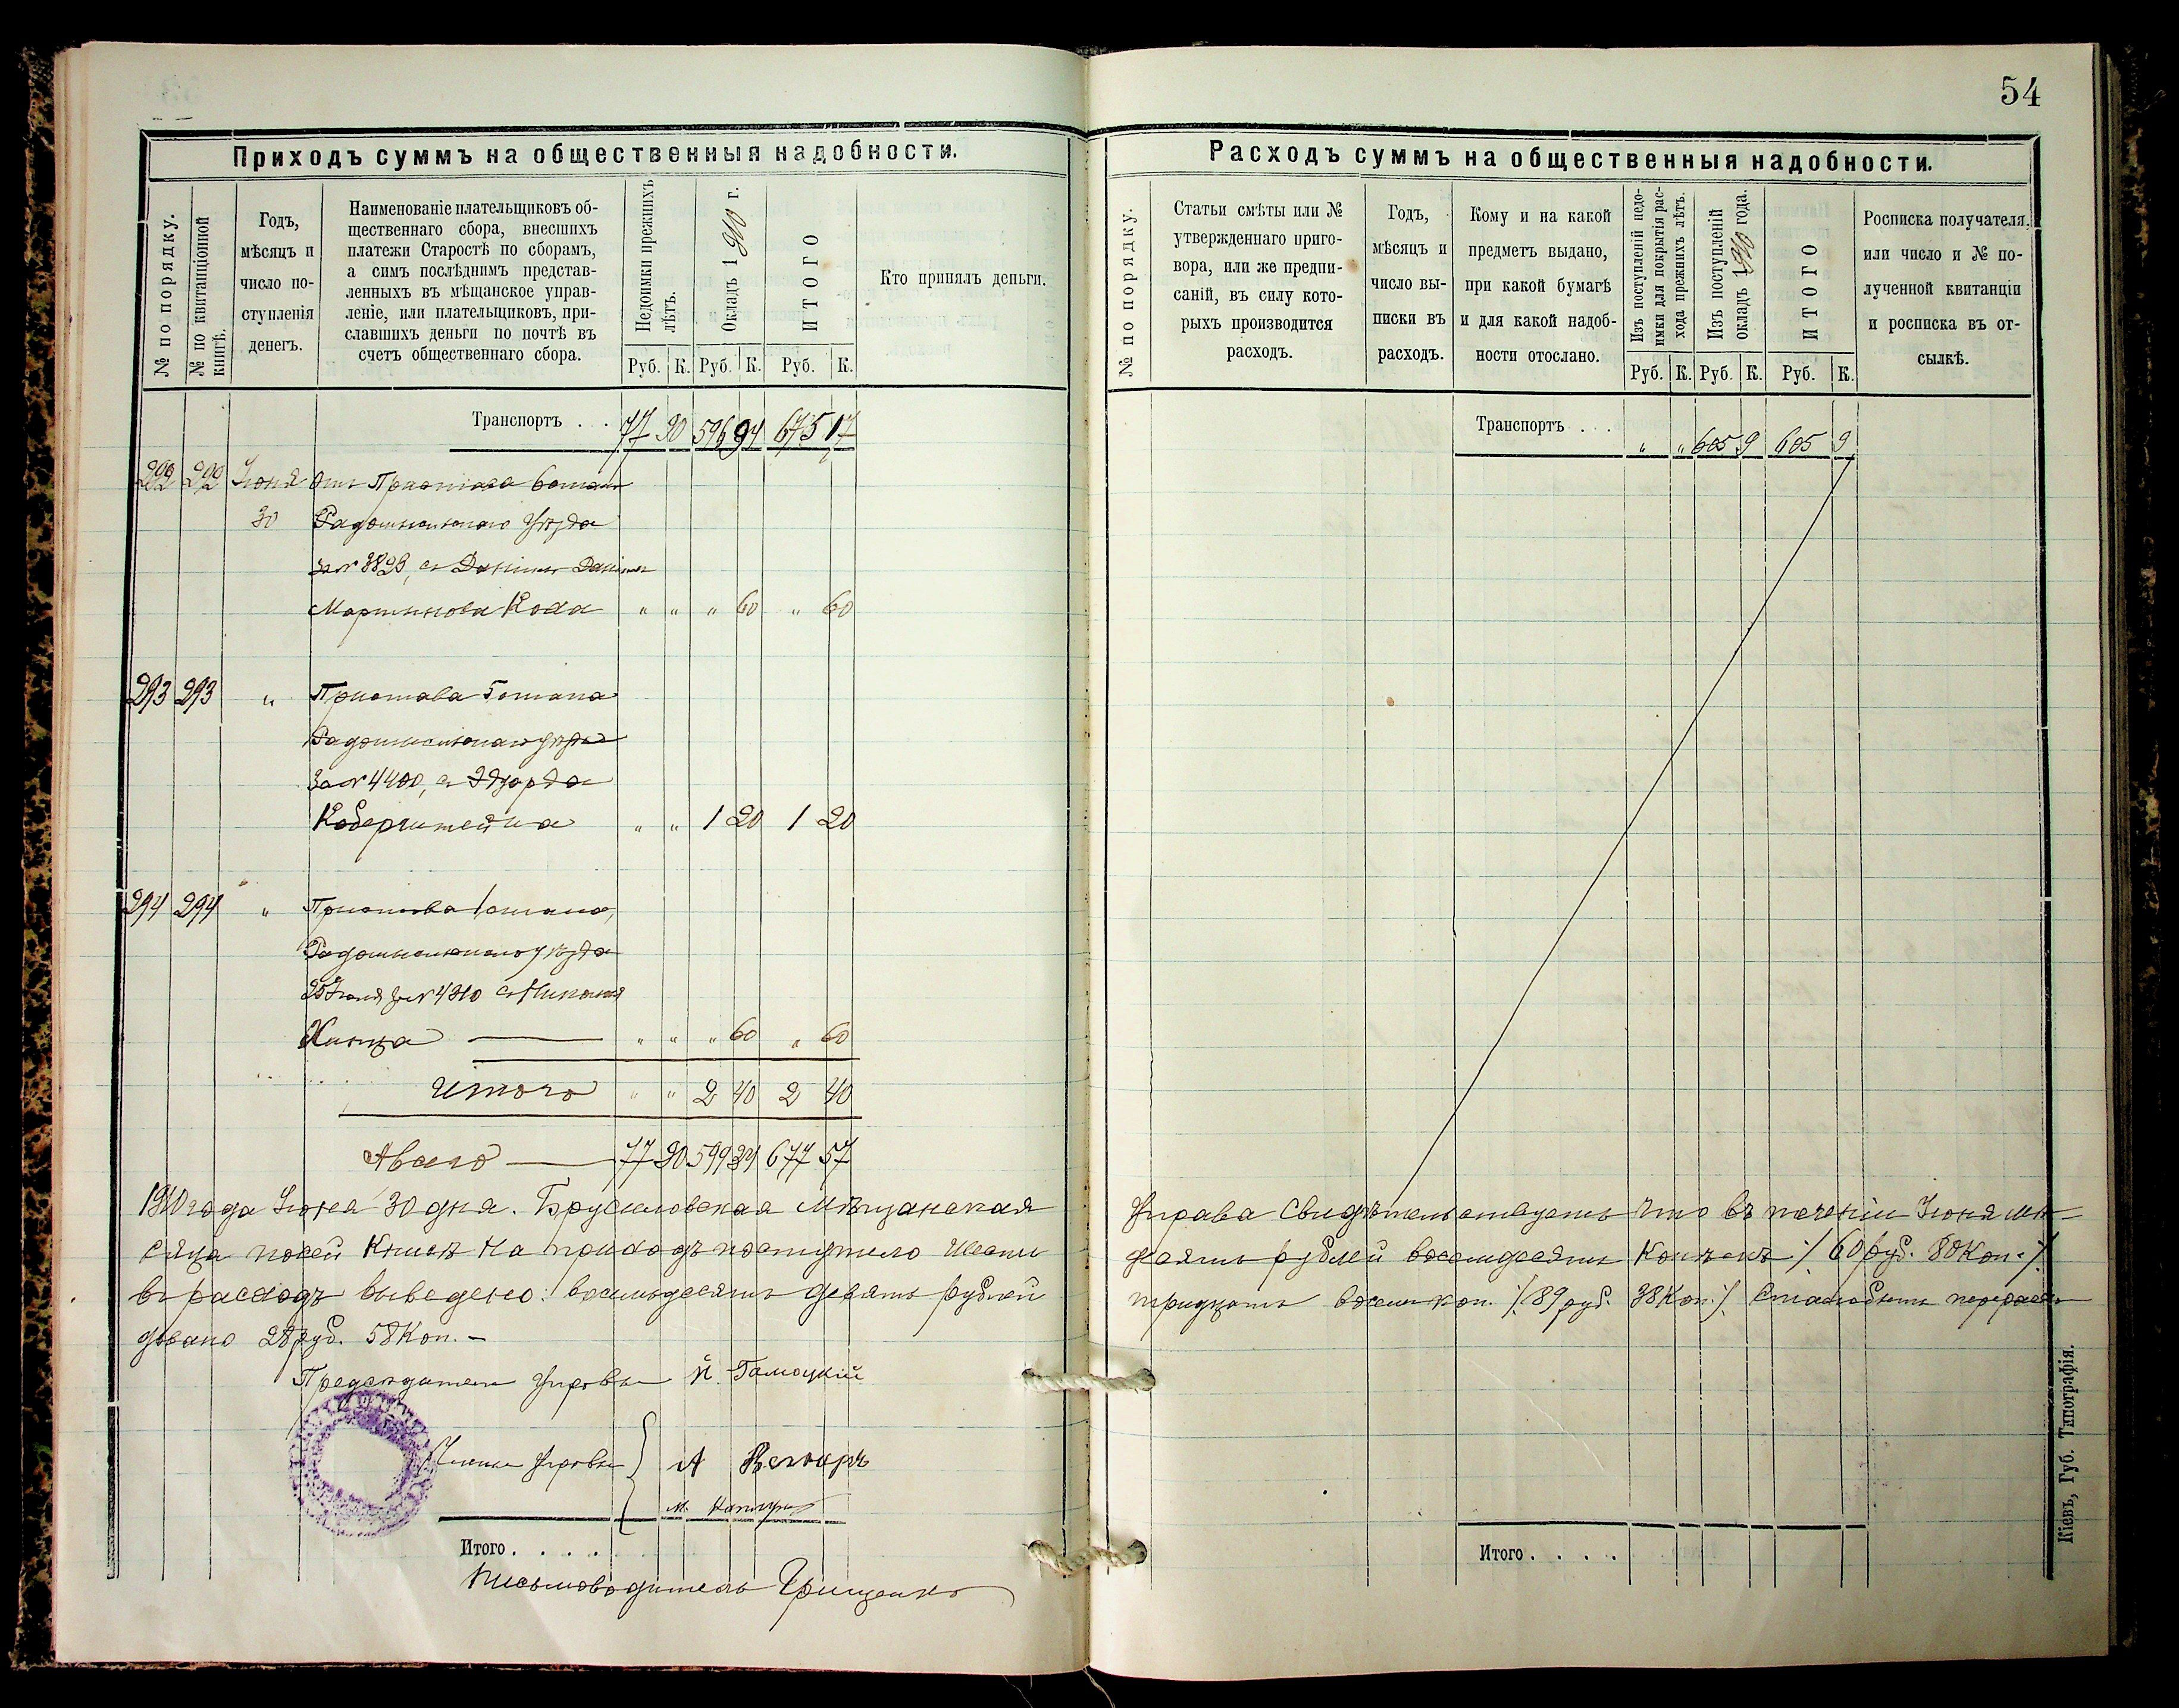 54
Приходъ суммъ на общественныя надобности.
№ по порядку.
№ по квитанціонной книгѣ.
Годъ,
мѣсяцъ и
число по-
ступленія
денегъ.
Наименованіе плательщиковъ об-
щественнаго сбора, внесшихъ
платежи Старостѣ по сборамъ,
а симъ послѣднимъ представ-
ленныхъ въ мѣщанское управ-
леніе, или плательщиковъ, при-
славшихъ деньги по почтѣ въ
счетъ общественнаго сбора.
Недоимки прежнихъ лѣтъ.
Окладъ 1910 г.
ИТОГО
Кто принялъ деньги.
Руб. К. Руб. К. Руб. К.
Транспортъ . . 77 90 596 94 675 17
292 292 Іюня Отъ Пристава 6 стана
30 Радомысльскаго уѣзда
за № 3823, съ
Мартинова " " " 60 " 60
293 293 " Пристава 5 стана
Радомысльскаго уѣзда
за № 4400, съ Эдуарда
Коберштейна " " 1 20 1 20
294 294 " Пристава 1 стана,
Радомысльскаго уѣзда
25 Іюня за № 4310 съ
" " " 60 " 60
Итого " " 2 40 2 40
А всего 77 599 34 677 57
1910 года Іюня 30 дня. Брусиловская Мѣщанская
сяца по сей Книгѣ на приходъ поступило шесть
въ расходъ выведено: восемьдесятъ девять рублей
довано 28 руб. 58 Коп. –
Предсѣдатель Управы
Члены Управы А
М.
Итого . . . . .
Письмоводитель Грищенко
Расходъ суммъ на общественныя надобности.
№ по порядку.
Статьи смѣты или №
утвержденнаго приго-
вора, или же предпи-
саній, въ силу кото-
рыхъ производится
расходъ.
Годъ,
мѣсяцъ и
число вы-
писки въ
расходъ.
Кому и на какой
предметъ выдано,
при какой бумагѣ
и для какой надоб-
ности отослано.
Изъ поступленій недо-
имки для покрытія рас-
хода прежнихъ лѣтъ.
Изъ поступленій
окладъ 1910 года.
ИТОГО
Росписка получателя,
или число и № по-
лученной квитанціи
и росписка въ от-
сылкѣ.
Руб. К. Руб. К. Руб. К.
Транспортъ . . . " " 605 9 605 9
Управа свидѣтельствуетъ что въ теченіи Іюня мѣ-
десятъ рублей восемдесятъ Копѣекъ /. 60 руб. 80 Коп. ./
тридцать восемь коп. /. 89 руб. 38 Коп. ./
Итого . . . .
Кіевъ, Губ. Типографія.